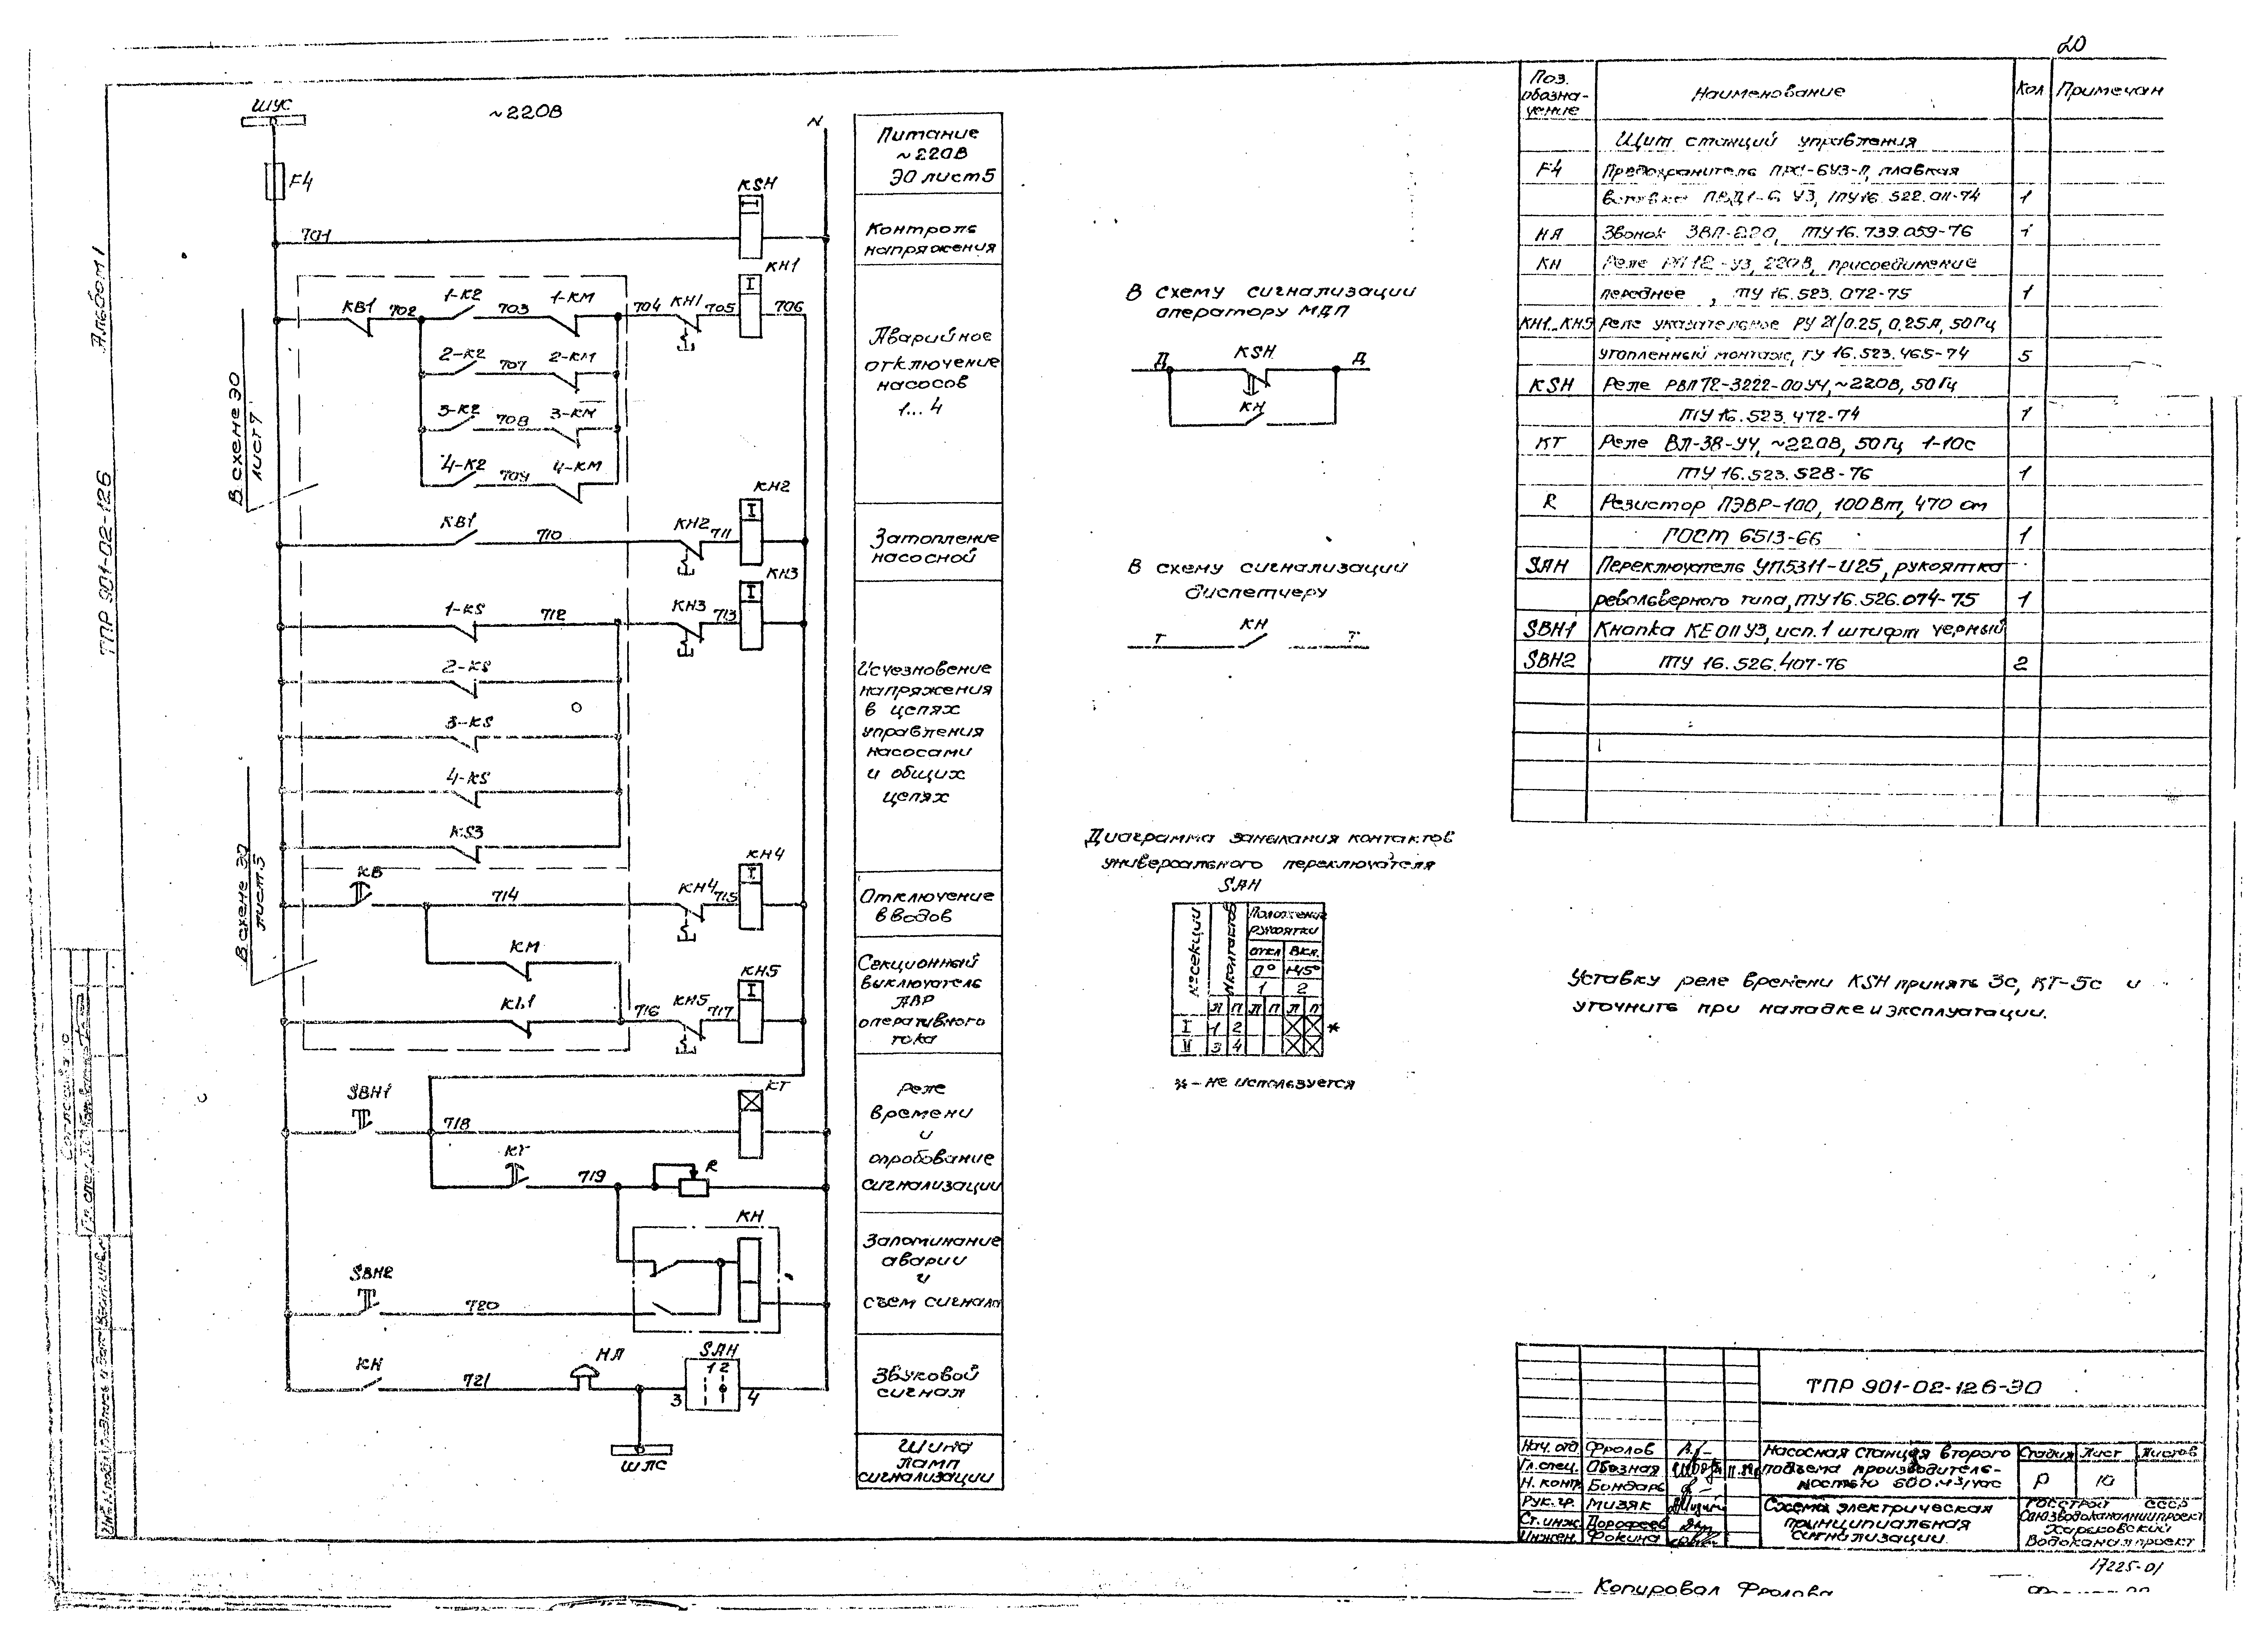 20
Альбом I
ТПР 901-02-126
ШУС
~220В
N
F4
KSH
701
КН1
КВ1
702
1-К2
703
1-КМ
704
КН1
705
706
2-К2
707
2-КМ
3-К2
708
3-КМ
4-К2
709
4-КМ
В схеме ЭО
лист 7
КН2
КВ1
710
КН2
711
КН3
1-KS
712
КН3
713
2-KS
3-KS
4-KS
KS3
В схеме ЭО
лист 5
КВ
714
КН4
715
КН4
КМ
КН5
КL1
716
КН5
717
SBH1
718
КТ
КТ
719
R
КН
SBH2
720
КН
721
НА
SAH
1 2
3
4
ШЛС
Питание
~220В
ЭО лист 5
Контроль
напряжения
Аварийное
отключение
насосов
1... 4
Затопление
насосной
Исчезновение
напряжения
в цепях
управления
насосами
и общих
цепях
Отключение
вводов
Секционный
выключатель
АВР
оперативного
тока
Реле
времени
и
опробование
сигнализации
Запоминание
аварии
и
съем сигнала
Звуковой
сигнал
Шина
ламп
сигнализации
В схему сигнализации
оператору МДП
Д
KSH
Д
КН
В схему сигнализации
диспетчеру
Т
КН
Т
Диаграмма замыкания контактов
универсального переключателя
SAH
№ секции
№ контактов
Положение
рукоятки
откл
Вкл.
0°
+45°
1
2
Л П Л П Л П
I 1 2 *
II 3 4
* - не используется
Поз. обозна- чение
Наименование
Кол
Примечан
Щит станций управления
F4 Предохранитель ПРС-6У3-П, плавкая
вставка ПВД1-6 У3, ТУ16.522.011-74 1
НА Звонок ЗВП-220, ТУ16.739.059-76 1
КН Реле РП12-У3, 220В, присоединение
переднее, ТУ 16.523.072-75 1
КН1...КН5 Реле указательное РУ 21/0.25, 0.25А, 50Гц
утопленный монтаж, ТУ 16.523.465-74 5
KSH Реле РВП72-3222-00У4, ~220В, 50Гц
ТУ16.523.472-74 1
КТ Реле ВЛ-38-У4, ~220В, 50Гц 1-10с
ТУ 16.523.528-76 1
R Резистор ПЭВР-100, 100Вт, 470 ом
ГОСТ 6513-66 1
SAH Переключатель УП5311-И25, рукоятка
револьверного типа, ТУ16.526.074-75 1
SBH1 Кнопка КЕ011У3, исп.1 штифт черный
SBH2 ТУ 16.526.407-76 2
Уставку реле времени KSH принять 3с, КТ-5с и
уточнить при наладке и эксплуатации.
ТПР 901-02-126-ЭО
Нач. отд Фролов
Гл. спец. Обозная
Н. контр Бондарь
Рук. гр. Мизяк
Ст. инж. Дорофеев
Инжен. Фокина
Насосная станция второго
подъема производитель-
ностью 600 м3/час
Стадия
Лист
Листов
Р
10
Схема электрическая
принципиальная
сигнализации.
Госстрой СССР
Союзводоканалниипроект
Харьковский
Водоканалпроект
17225-01
Копировал Фролова
Согласовано